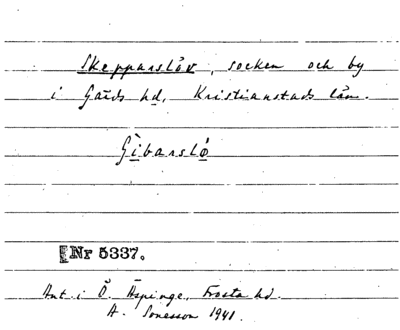 Skepparslöv, socken och by
i Gärds hd, Kristianstads län.
Gìbarslǿ
Nr 5337.
Ant. i Ö. Äspinge, Frosta hd.
A. Sonesson 1941.